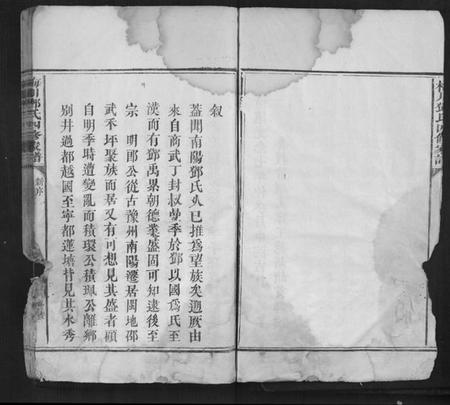 叙
蓋聞南陽鄧氏久已推爲望族矣遡厥由
來自商武丁封叔曼季於鄧以國爲氏至
漢而有鄧禹累朝德業盛固可知逮後至
宗明郎公從古豫州南陽遷居閩地邵
武禾坪聚族而居又有可想見其盛者顧
自明季時遭變亂而積環公積珮公離鄉
別井過都越國至寧都蓮塘背見其水秀
鄧氏四修